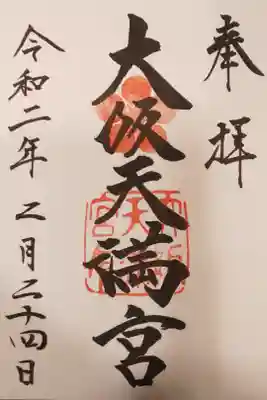 奉拝
大阪天満宮
令和二年二月二十四日